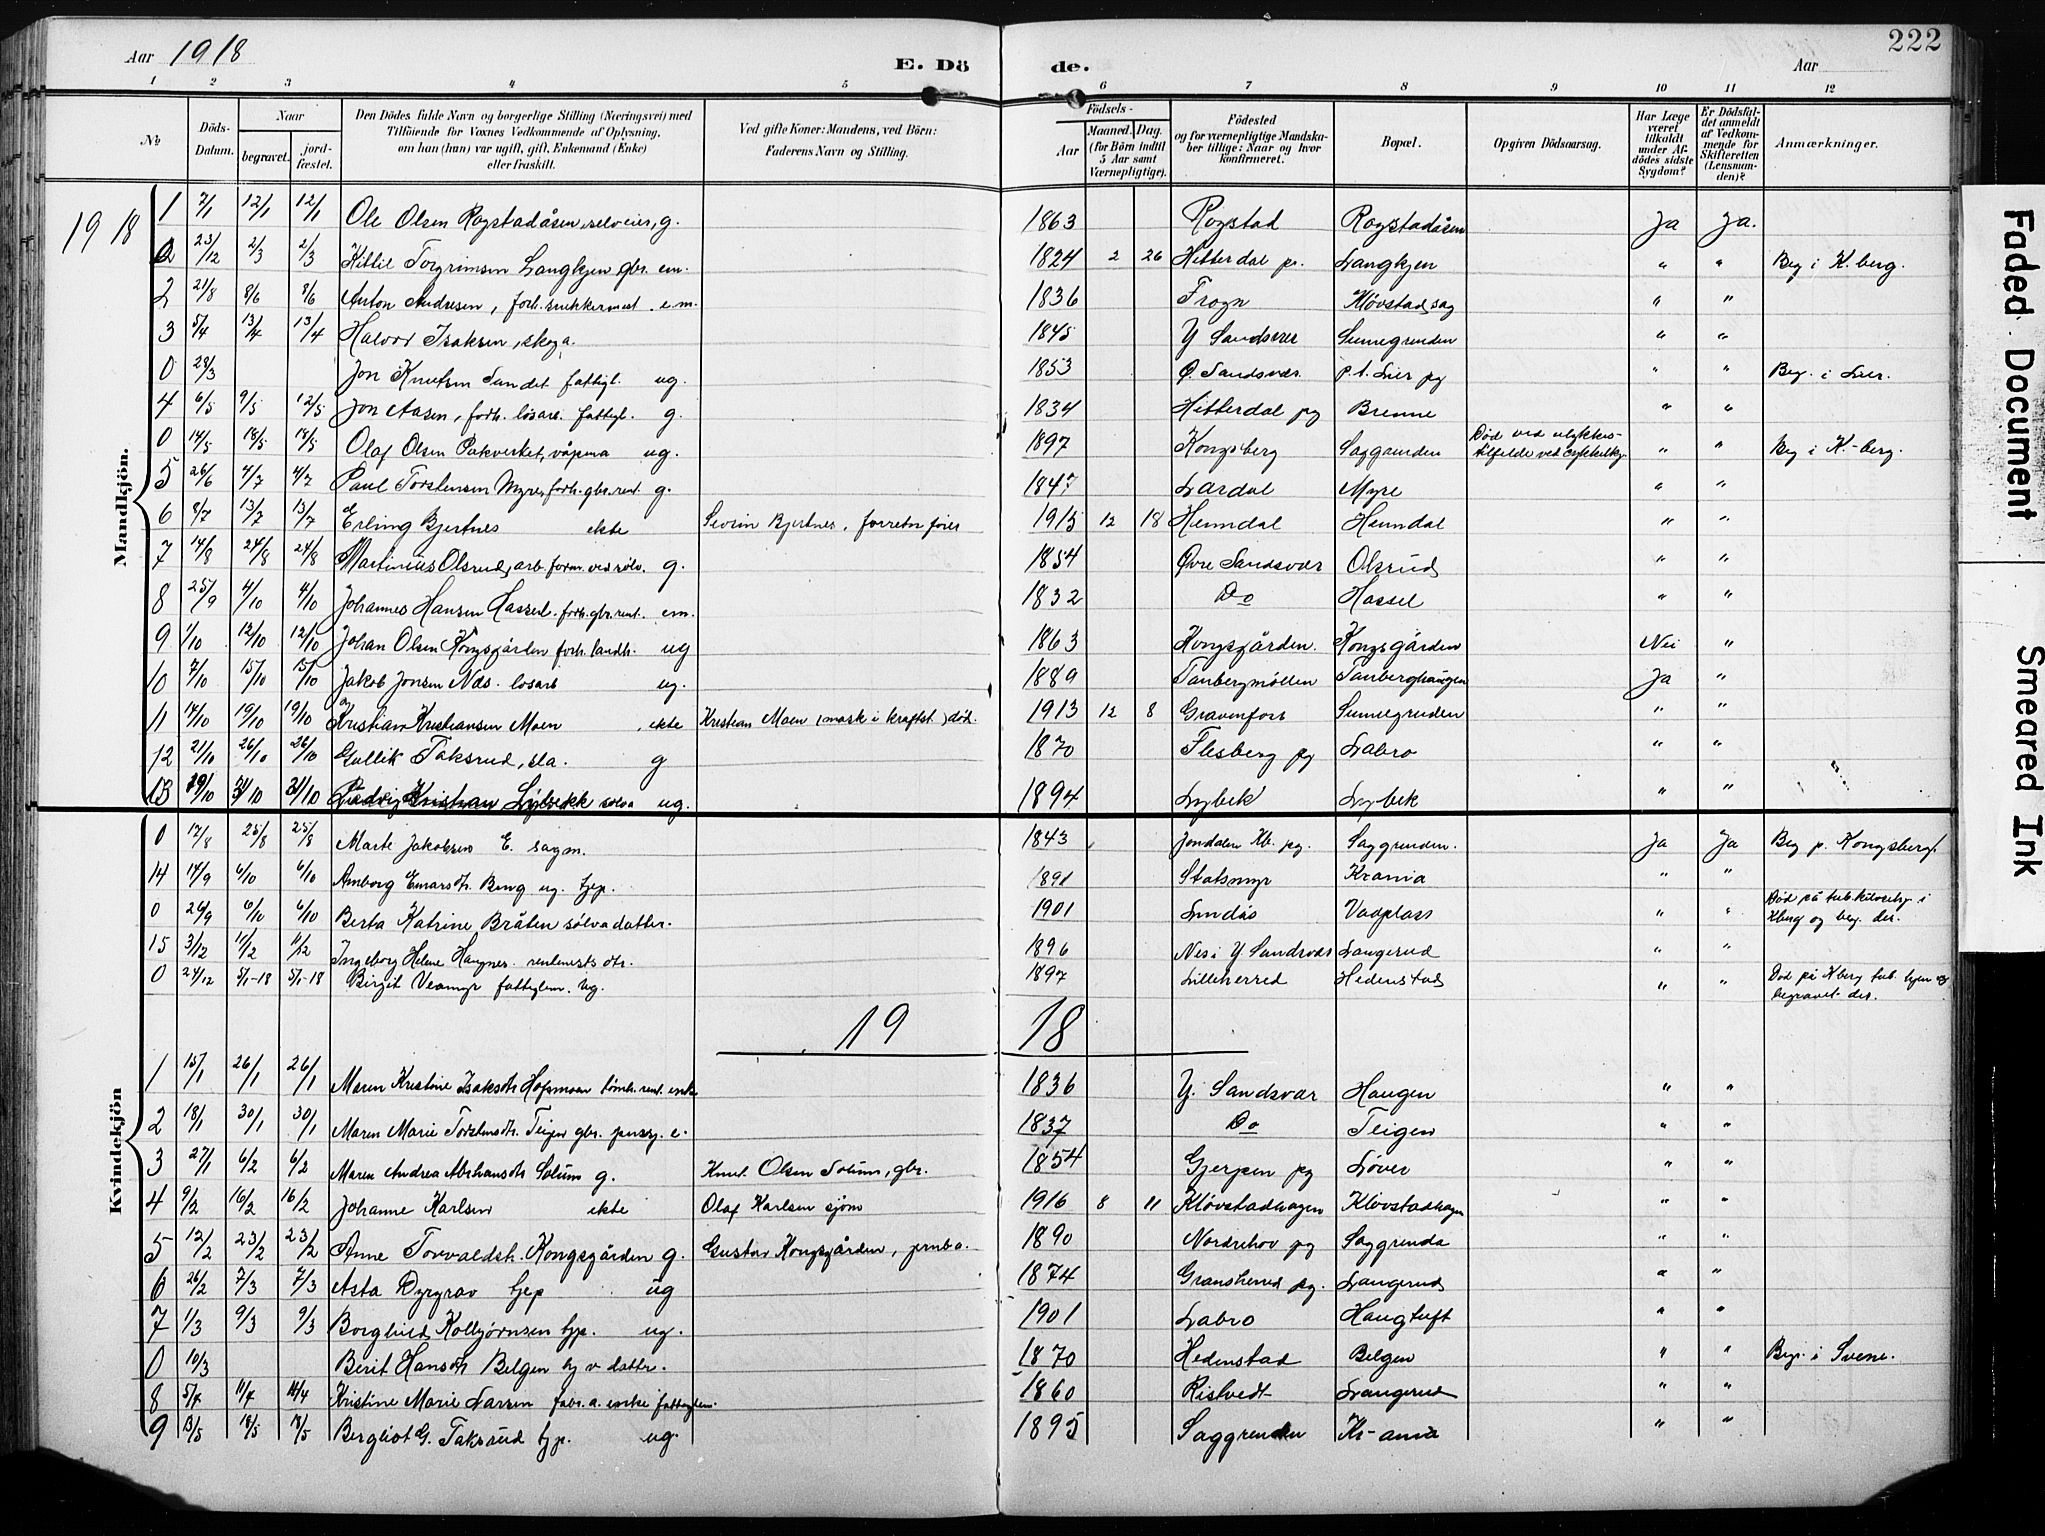 Aar 1918
E. Döde.
Aar
222
1 2 3 4 5 6 7 8 9 10 11 12
No
Döds-Datum.
Naar
begravet.
jordfæstet.
Den Dödes fulde Navn og borgerlige Stilling (Næringsvei) med
Tilföiende for Voxnes Vedkommende af Oplysning,
om han (hun) var ugift, gift, Enkemand (Enke)
eller fraskilt.
Ved gifte Koner: Mandens, ved Börn:
Faderens Navn og Stilling.
Födsels-
Aar
Maaned. Dag.
(for Börn indtil
5 Aar samt
Værnepligtige).
Födested
og for værnepligtige Mandskaber tillige: Naar og hvor
konfirmeret.
Bopæl.
Opgiven Dödsaarsag.
Har Læge
været
tilkaldt
under Afdödes sidste
Sygdom?
Er Dödsfaldet anmeldt
af Vedkommende for
Skifteretten
(Lensmanden)?
Anmærkninger.
Mandkjön.
1918
1 7/1 12/1 12/1 Ole Olsen Rogstadåsen, selveier, g. 1863 Rogstad Rogstadåsen Ja Ja.
0 23/12 2/3 2/3 Kittil Torgrimsen Langkjen gbr. em. 1824 2 26 Hitterdal pr. Langkjen " " Beg i K.berg.
2 21/8 8/6 8/6 Anton Andresen, forh. snikkermest. e.m. 1836 Frogn Kløvstadsag " "
3 5/4 13/4 13/4 Halvor Isaksen, skoga. 1845 Y Sandsver Sumegrunden " "
0 28/3 Jon Knutsen Sundet fattigl. ug. 1853 Ø. Sandsvær. p.t. Lier pg " " Beg. i Lier.
4 6/5 9/5 12/5 Jon Aasen, forh. løsarb. fattigl. g. 1834 Hitterdal pg Brenne " "
0 14/5 18/5 18/5 Olaf Olsen Pukverket, våpena ug. 1897 Kongsberg Saggrenden Død ved ulykkestilfelde ved cykkelkj. " " Beg i K.-berg.
5 26/6 4/7 4/7 Paul Torstensen Myre, forh. gbr. rent. g. 1847 Lardal Myre " "
6 8/7 13/7 13/7 Erling Bjertnes ekte Severin Bjertnes, forretn fører 1915 12 18 Heimdal Heimdal " "
7 14/8 24/8 24/8 Martinius Olsrud, arb. form. ved sølv. g. 1854 Øvre Sandsvær Olsrud " "
8 25/9 4/10 4/10 Johannes Hansen Hassel. forh. gbr. rent. em. 1832 Do Hassel " "
9 1/10 12/10 12/10 Johan Olsen Kongsgården forh. landh. ug 1863 Kongsgården. Kongsgården Nei "
10 7/10 15/10 15/10 Jakob Jonsen Næs. løsarb ug. 1889 Tanbergmøllen Tanberghaugen Ja "
11 14/10 19/10 19/10 Kristian Kristiansen Moen ekte Kristian Moen (mask i kraftst.) død. 1913 12 8 Gravenfoss Sumegrunden " "
12 21/10 26/10 26/10 Gullik Taksrud, sla. g 1870 Flesberg pg Labro " "
13 29/10 31/10 31/10 Ludvig Kristian Lybekk sølva ug. 1894 Lybek Lybek " "
0 17/8 25/8 25/8 Marte Jakobsen E. sagm. 1843 Jondalen Kb. pg. Saggrenden. Ja Ja Beg p. Kongsberg.
14 14/9 6/10 6/10 Amborg Einarsdt. Berg ug. tjp. 1891 Statsmyr Krania " "
0 26/9 6/10 6/10 Berta Katrine Bråten sølvadatter. 1901 Lindås Vadplass " " Død på tub. i Kberg og beg. der.
15 3/12 11/12 11/12 Ingeborg Helene Haugnes. dtr. 1896 Nes i Y. Sandsvær Langerud " "
0 24/12 5/1-18 5/1-18 Birgit Veamyr fattiglem. Ug. 1897 Lilleherred Hedenstad " " Død på Kberg tub. hjem og begravet der.
1918
Kvindekjön
1 15/1 26/1 26/1 Maren Kristine Isaksdt Hofsmoen rent. enke 1836 Y. Sandsvær Haugen " "
2 18/1 30/1 30/1 Maren Marie Torstensdt. Teigen gbr. e. 1837 Do Teigen " "
3 27/1 6/2 6/2 Maren Andrea Abrahamsdt Solum g. Knut Olsen Solum, gbr. 1854 Gjerpen pg Løver " "
4 9/2 16/2 16/2 Johanne Karlsen ekte Olaf Karlsen sjøm 1916 8 11 Kløvstadhagen Kløvstadhagen " "
5 12/2 23/2 23/2 Anne Torvaldsdt. Kongsgården g. Gustav Kongsgården, jernba. 1890 Norderhov pg Saggrenda " "
6 26/2 7/3 7/3 Asta Dyrgrav tjep ug 1874 Gransherad pg. Langerud " "
7 1/3 9/3 9/3 Borghild Kolbjørnsen tjp. ug. 1901 Labro Haugtuft " "
0 10/3 Berit Hansdt Belgen datter. 1870 Hedenstad Belgen " " Beg. i Svene.
8 5/4 11/4 14/4 Kristine Marie Larsen fabr. a. enke fattiglem. 1860 Ristvedt Langerud " "
9 13/5 18/5 18/5 Bergliot G. Taksrud tjp. ug. 1895 Saggrenden Kr-ania " "
Faded Document
Smeared Ink